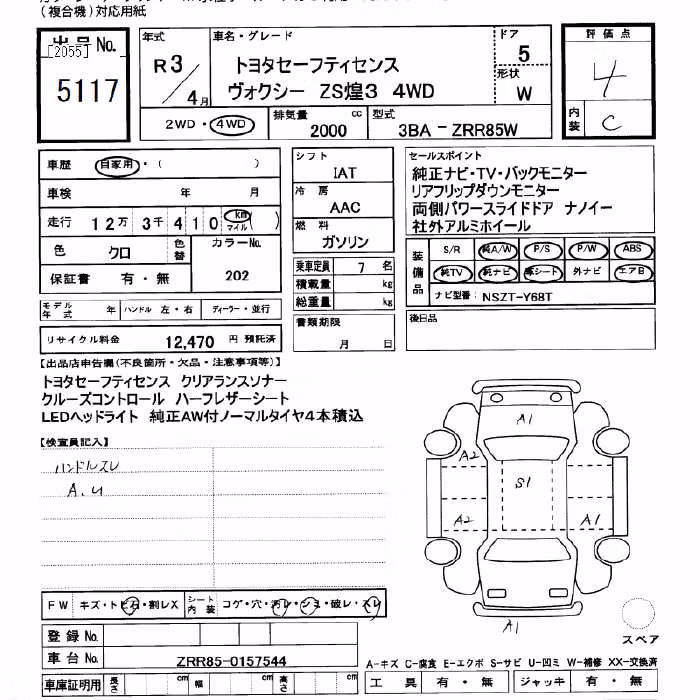 (複合機)対応用紙
出品No.
[2055]
5117
年式
R3/4月
車名・グレード
トヨタセーフティセンス
ヴォクシー ZS煌3 4WD
ドア
5
形状
W
評価点
4
内装
C
2WD・4WD
排気量
2000 cc
型式
3BA-ZRR85W
車歴 自家用・( )
車検 年 月
走行 12万 3千 4 1 0 km マイル ( )
色 クロ
色替
カラーNo.
202
保証書 有・無
モデル年式 年
ハンドル 左・右
ディーラー・並行
リサイクル料金 12,470 円 預託済
シフト
IAT
冷房
AAC
燃料
ガソリン
乗車定員 7 名
積載量 kg
総重量 kg
書類期限
月 日
セールスポイント
純正ナビ・TV・バックモニター
リアフリップダウンモニター
両側パワースライドドア ナノイー
社外アルミホイール
装備品
S/R 純A/W P/S P/W ABS
純TV 純ナビ 革シート 外ナビ エアB
ナビ型番: NSZT-Y68T
後日品
【出品店申告欄(不良箇所・欠品・注意事項等)】
トヨタセーフティセンス クリアランスソナー
クルーズコントロール ハーフレザーシート
LEDヘッドライト 純正AW付ノーマルタイヤ4本積込
【検査員記入】
ハンドルスレ
A.U
A1
A2
S1
A2
A1
A1
スペア
FW キズ・トビ石・割レX
シート内装 コゲ・穴・汚レ・シミ・破レ・スレ
登録No.
車台No. ZRR85-0157544
車庫証明用 長さ cm 幅 cm 高さ cm
A-キズ C-腐食 E-エクボ S-サビ U-凹ミ W-補修 XX-交換済
工具 有・無 ジャッキ 有・無